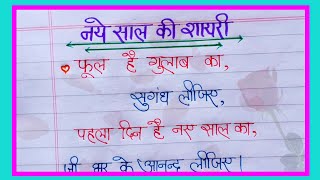 नये साल की शायरी
फूल है गुलाब का,
सुगंध लीजिए,
पहला दिन है नए साल का,
जी भर के आनन्द लीजिए।